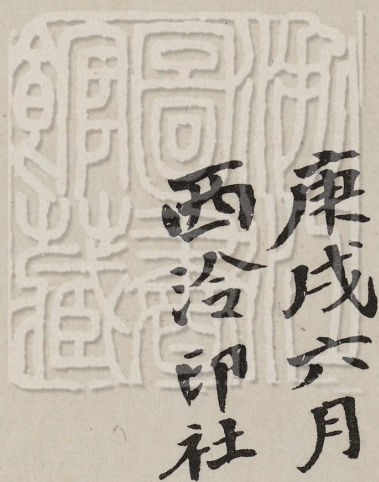 庚戌六月
西泠印社